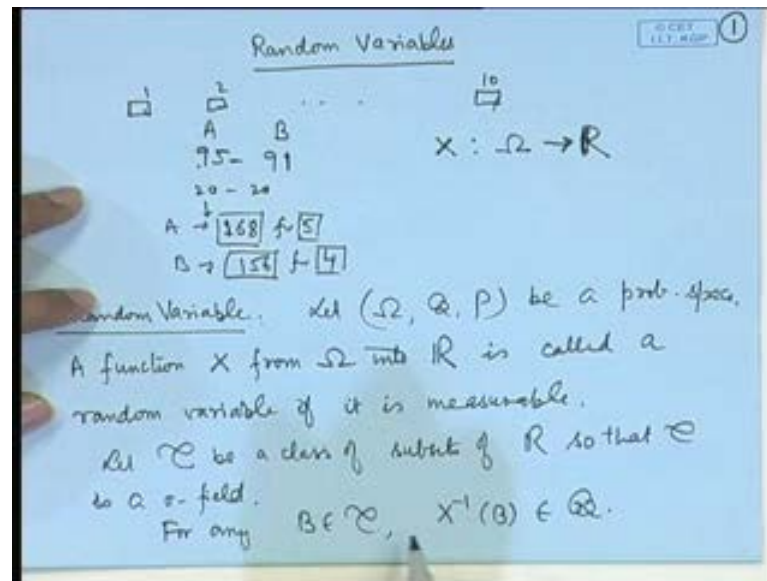 Random Variables
© CET
I.I.T. KGP
1
1 2 .... 10
A B
95- 91
20 - 20
X : Ω → R
A → 168 for 5
B → 156 for 4
Random Variable. Let (Ω, Q, P) be a prob. space.
A function X from Ω into R is called a
random variable if it is measurable.
Let C be a class of subsets of R so that C
is a σ- field.
For any B ∈ C, X⁻¹(B) ∈ Q.